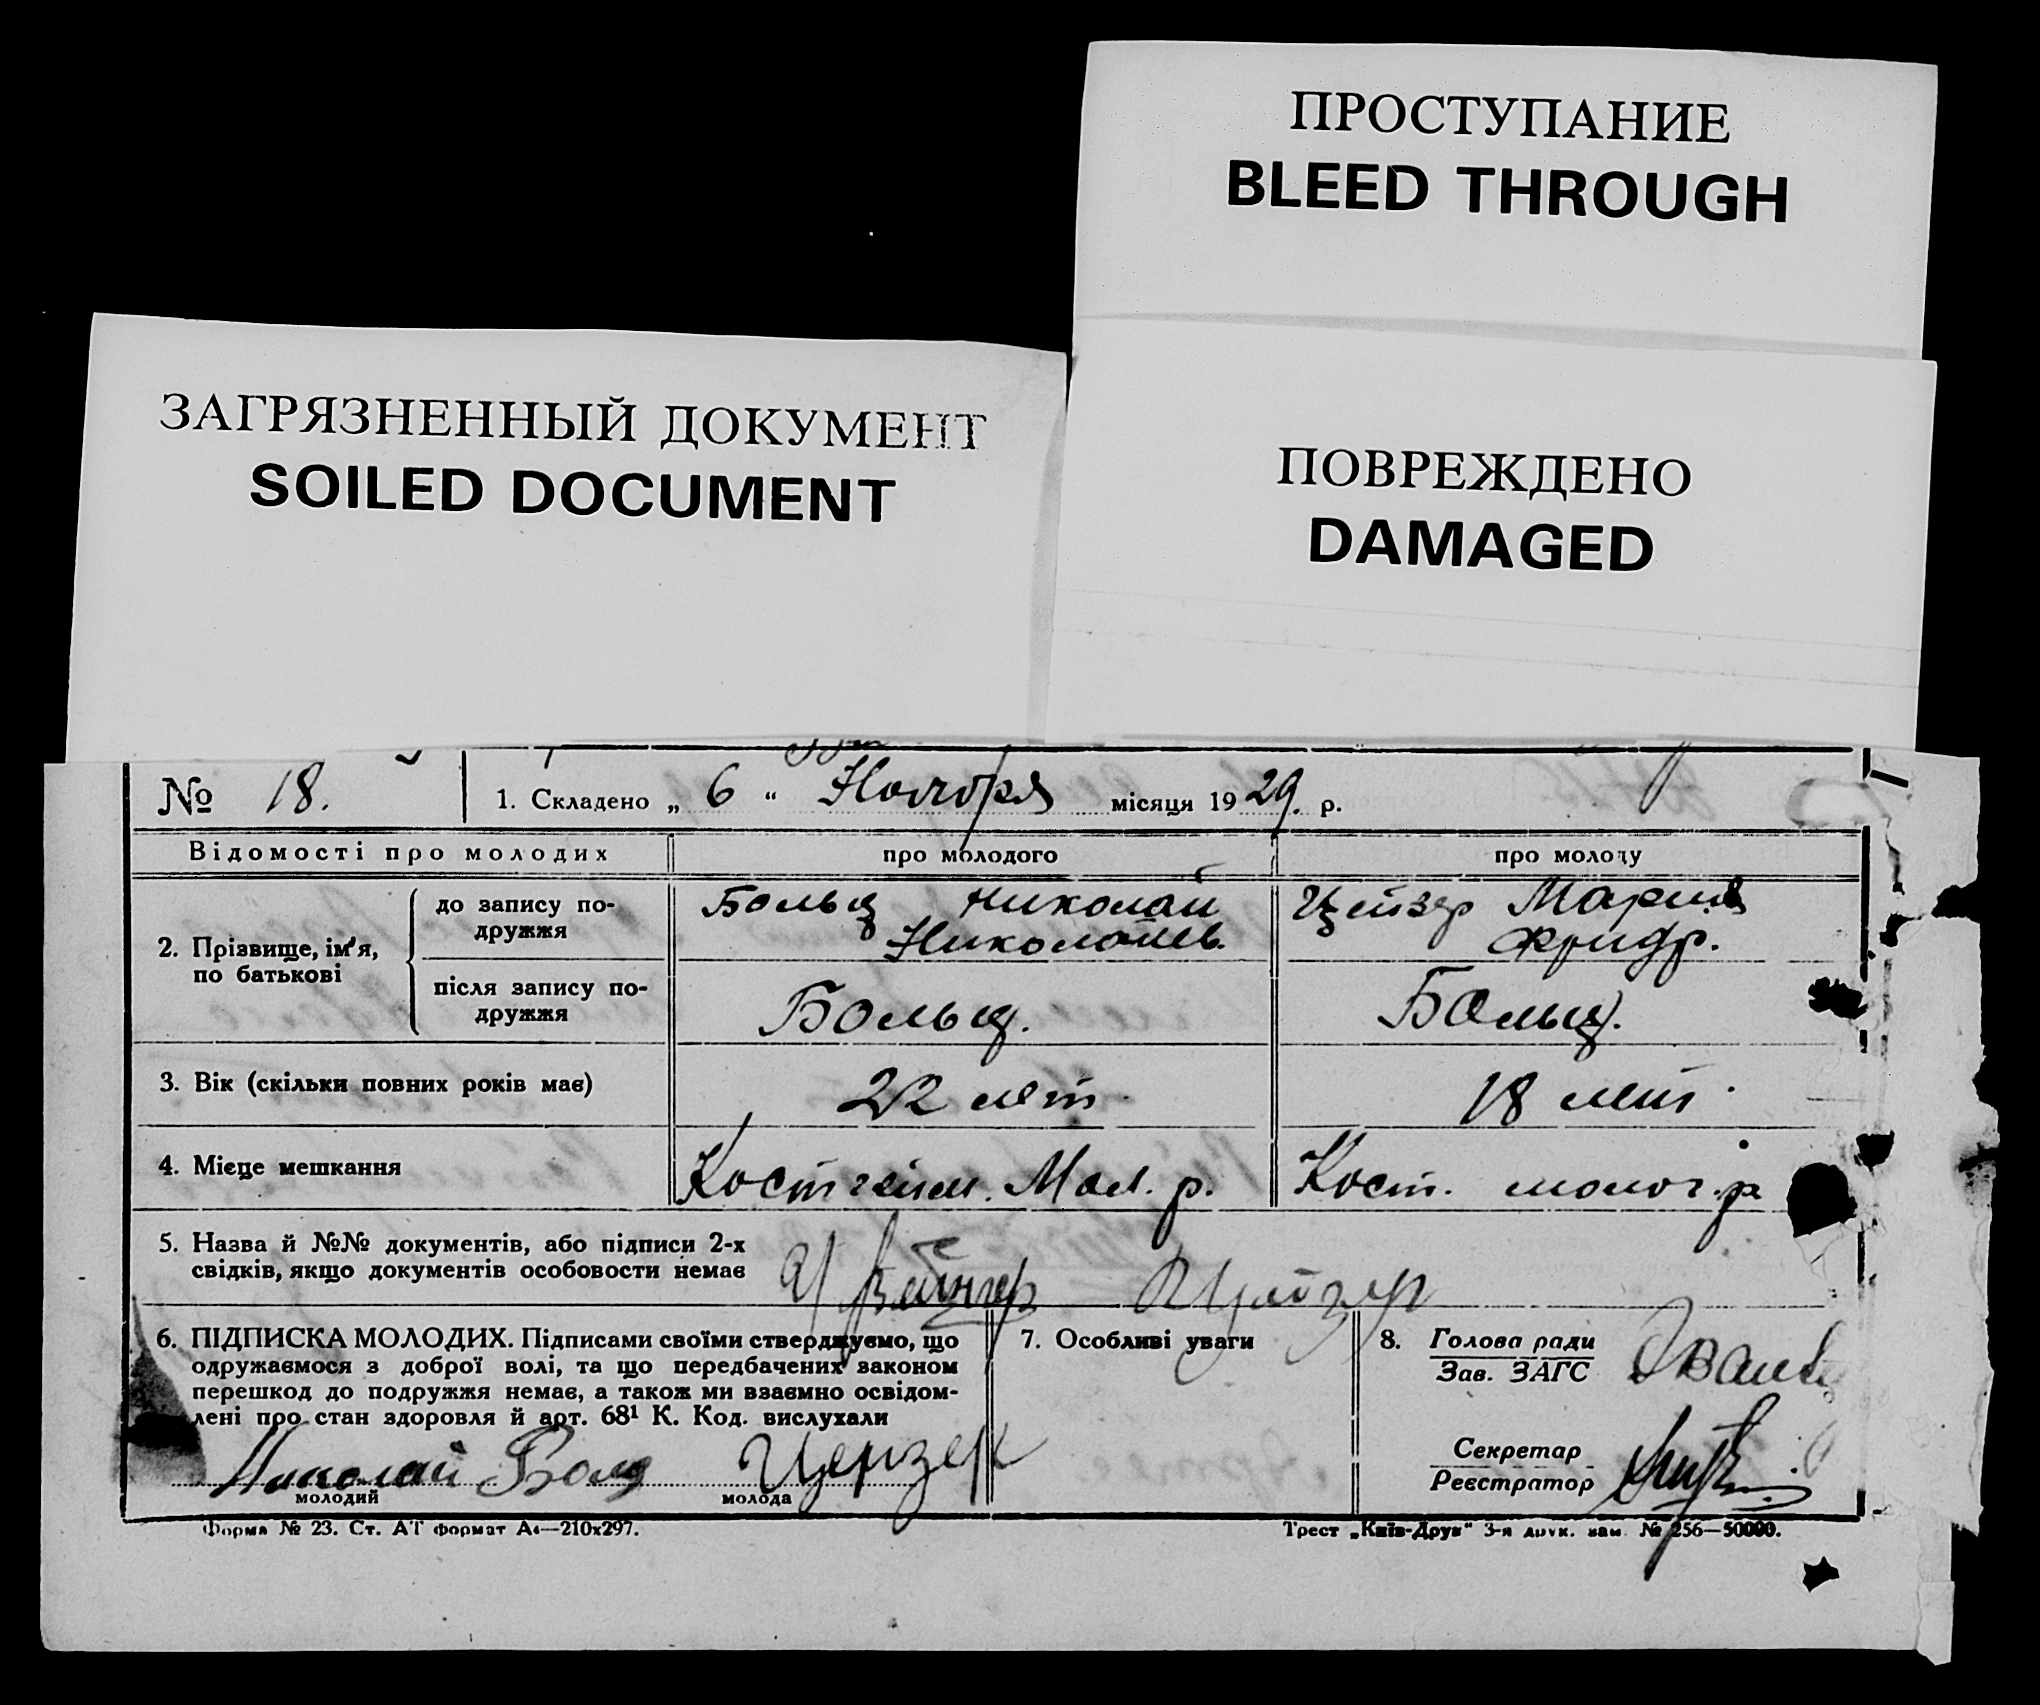 ПРОСТУПАНИЕ
BLEED THROUGH
ЗАГРЯЗНЕННЫЙ ДОКУМЕНТ
SOILED DOCUMENT
ПОВРЕЖДЕНО
DAMAGED
№ 18. 1. Складено „ 6 “ Ноября місяця 1929. р.
Відомості про молодих про молодого про молоду
2. Прізвище, ім'я, по батькові
до запису по-
дружжя
Больц Николай
Николаев.
Цейзер Мария
Фридр.
після запису по-
дружжя
Больц.
Больц.
3. Вік (скільки повних років має) 22 лет. 18 лет.
4. Місце мешкання Костгейм. Мол. р. Кост. молоч. р
5. Назва й №№ документів, або підписи 2-х
свідків, якщо документів особовости немає
Цейзер
6. ПІДПИСКА МОЛОДИХ. Підписами своїми стверджуємо, що
одружаємося з доброї волі, та що передбачених законом
перешкод до подружжя немає, а також ми взаємно освідом-
лені про стан здоров'я й арт. 68¹ К. Код. вислухали
Николай Болц
молодий молода
7. Особливі уваги
8. Голова ради
Зав. ЗАГС
Секретар
Реєстратор
Форма № 23. Ст. АТ формат А4—210х297.
Трест „Київ-Друк“ 3-я друк. зам. № 256—50000.